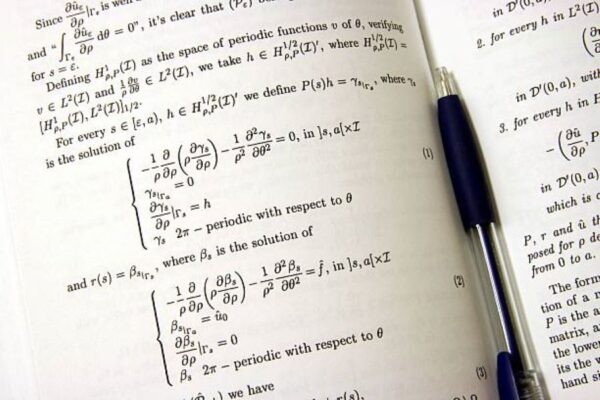 Since ∂û_ε/∂ρ|Γ_s is well
and "∫_Γε ∂û_ε/∂ρ dθ = 0", it's clear that (P_ε)
for s = ε.
Defining H¹_ρ,P(I) as the space of periodic functions v of θ, verifying
v ∈ L²(I) and 1/ρ ∂v/∂θ ∈ L²(I), we take h ∈ H^{1/2}_ρ,P(I)', where H^{1/2}_ρ,P(I) =
[H¹_ρ,P(I), L²(I)]_{1/2}.
For every s ∈ [ε, a), h ∈ H^{1/2}_ρ,P(I)' we define P(s)h = γ_s|Γ_s, where γ_s
is the solution of
-1/ρ ∂/∂ρ (ρ ∂γ_s/∂ρ) - 1/ρ² ∂²γ_s/∂θ² = 0, in ]s,a[×I
γ_s|Γ_a = 0
∂γ_s/∂ρ|Γ_s = h
γ_s 2π − periodic with respect to θ
(1)
and r(s) = β_s|Γ_s, where β_s is the solution of
-1/ρ ∂/∂ρ (ρ ∂β_s/∂ρ) - 1/ρ² ∂²β_s/∂θ² = f̂, in ]s,a[×I
β_s|Γ_a = û₀
∂β_s/∂ρ|Γ_s = 0
β_s 2π − periodic with respect to θ
(2)
we have
r(s),
(3)
in D'(0,
2. for every h in L²(I)
in D'(0,a), with
3. for every h in H
-(∂û/∂ρ, P
in D'(0,a),
which is
P, r and û
posed for ρ
from 0 to a.
The form
tion of a
P is the a
matrix, a
the lower
its the
hand si